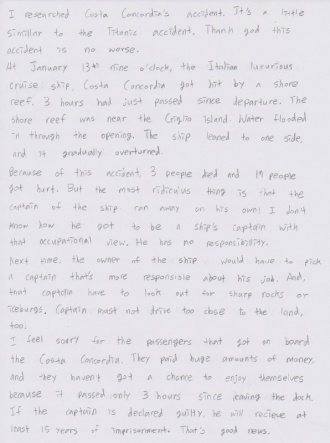 I researched Costa Concordia's accident. It's a little
simillar to the Titanic accident. Thank god this
accident is no worse.
At January 13th nine o'clock, the Italian luxurious
cruise ship, Costa Concordia got hit by a shore
reef. 3 hours had just passed since departure. The
shore reef was near the Giglio island. Water flooded
in through the opening. The ship leaned to one side,
and it gradually overturned.
Because of this accident, 3 people died and 19 people
got hurt. But the most ridiculus thing is that the
captain of the ship ran away on his own! I don't
know how he got to be a ship's captain with
that occupational view. He has no responsibility.
Next time, the owner of the ship would have to pick
a captain that's more responsible about his job. And,
that captain have to look out for sharp rocks or
iceburgs. Captain must not drive too close to the land,
too.
I feel sorry for the passengers that got on board
the Costa Concordia. They paid huge amounts of money,
and they haven't got a chance to enjoy themselves
because it passed only 3 hours since leaving the dock.
If the captain is declared guilty, he will recieve at
least 15 years of imprisonment. That's good news.